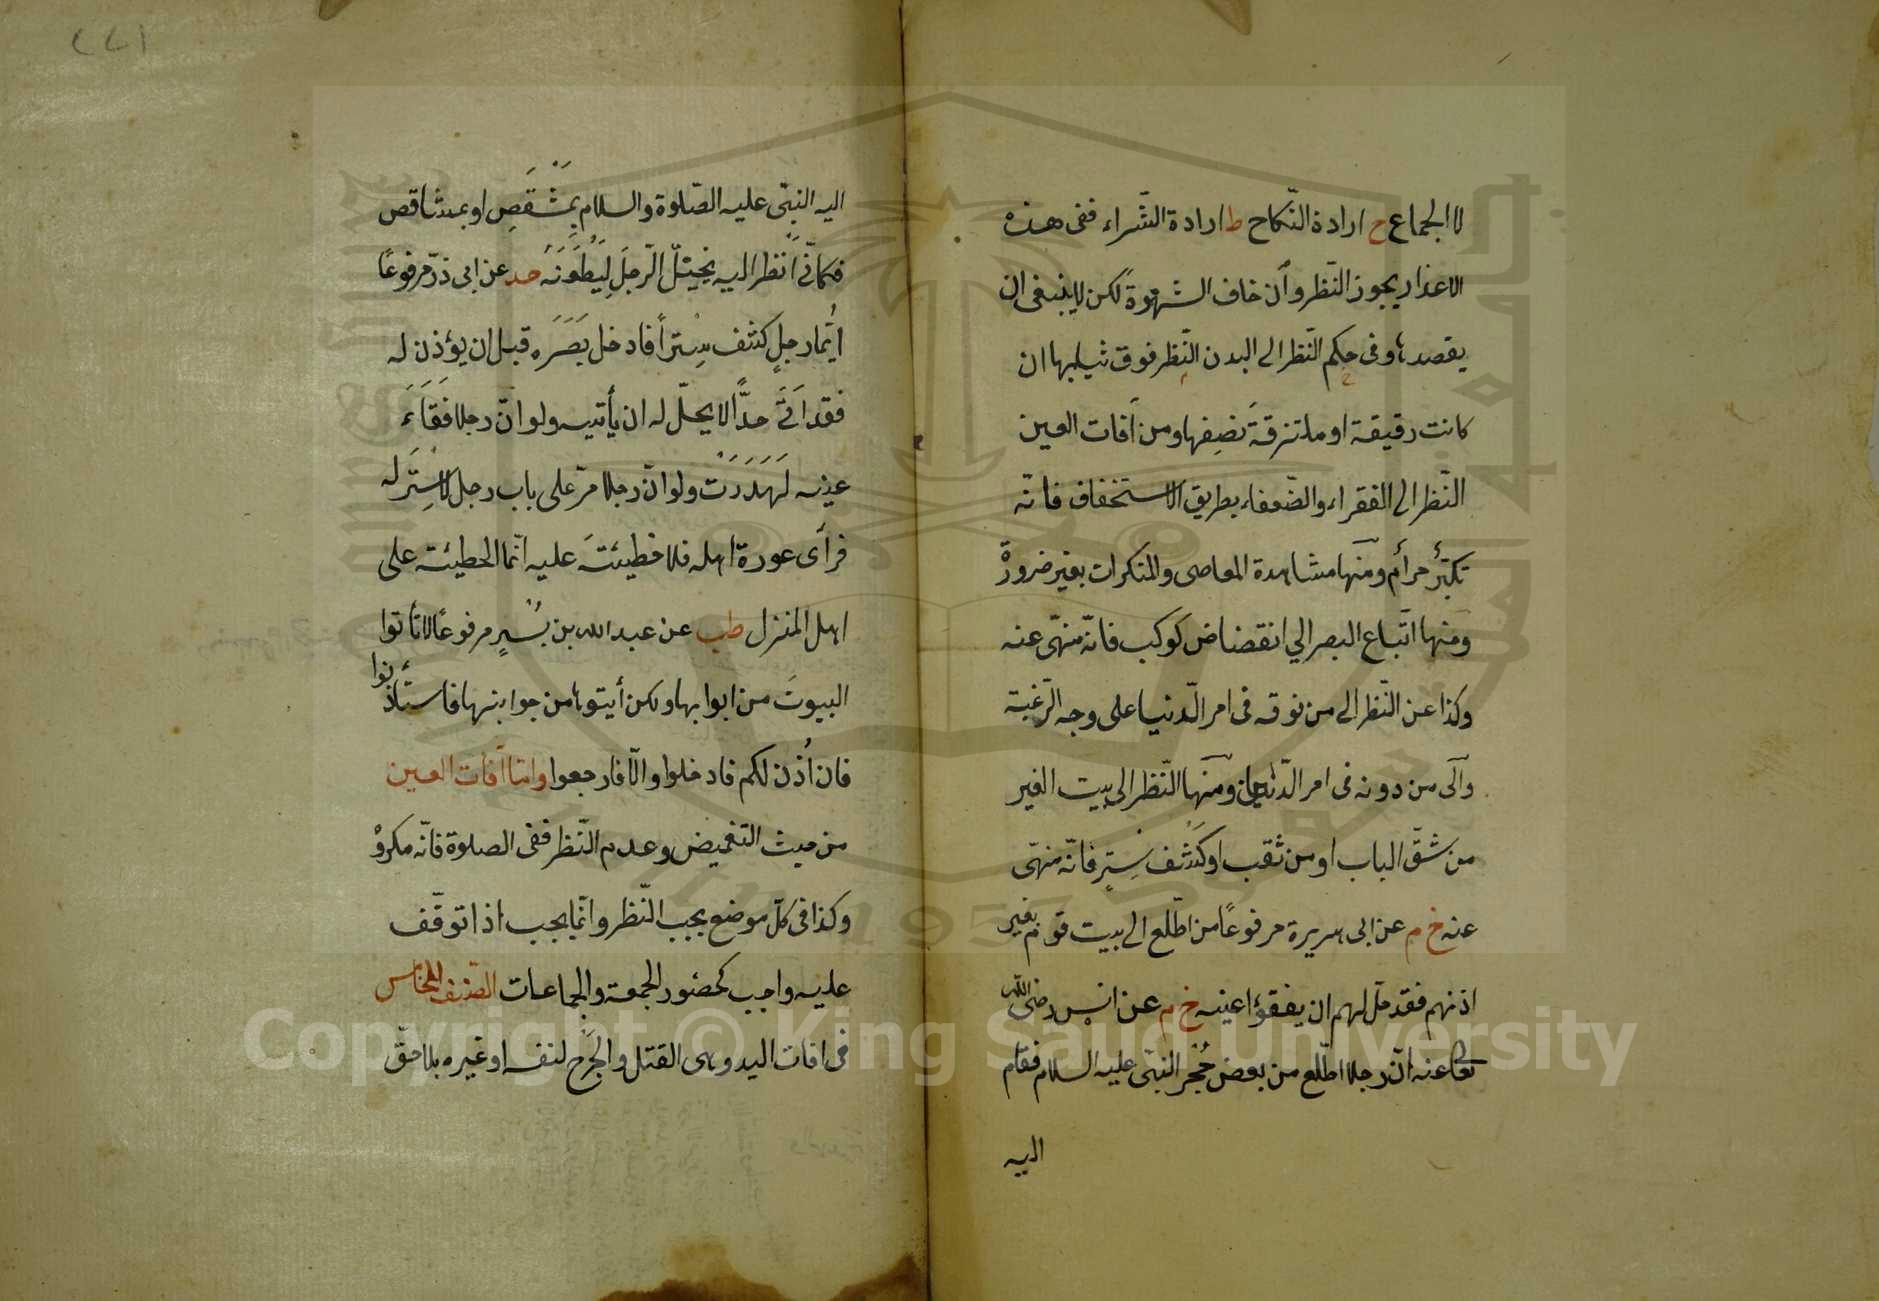 لا الجماع ح ارادة النّكاح ط ارادة الشّراء ففى هذه
الاعذار يجوز النّظر وأن خاف الشهوة لكن لا ينبغى ان
يقصدها وفى حكم النّظر الى البدن النّظر فوق ثيابها ان
كانت رقيقة او ملتزقة تصفها ومن آفات العين
النّظر الى الفقراء والضّعفاء بطريق الاستخفاف فانّه
تكبّر حرام ومنها مشاهدة المعاصى والمنكرات بغير ضرورة
ومنها اتّباع البصر الي انقضاض كوكب فانّه منهىّ عنه
وكذا عن النّظر الى من فوقه فى امر الدّنيا على وجه الرّغبة
والى من دونه فى امر الدّين ومنها النّظر الى بيت الغير
من شقّ الباب او من ثقب او كشف ستر فانّه منهىّ
عنه خ م عن ابى هريرة مرفوعًا من اطّلع الى بيت قوم بغير
اذنهم فقد حلّ لهم ان يفقؤا عينه خ م عن انس رضى الله
تعالى عنه انّ رجلا اطّلع من بعض حُجَر النبىّ عليه السلام فقام
اليه
٢٢١
اليه النبىّ عليه الصّلوة والسلام بِمَشْقَصٍ او بمشاقص
فكأنّى انظر اليه يختل الرّجلَ لِيَطْعَنَهُ حد عن ابى ذرّ مرفوعًا
ايّما رجلٍ كشف سِترًا فادخل بَصَرَه قبل ان يؤذن له
فقد اَتَى حدًّا لا يحلّ له ان يأتيه ولو انّ رجلا فَقَاَءَ
عينه لَهَدَرَتْ ولو انّ رجلا مرّ على باب رجل لا سِتْرَ له
فرأى عورة اهله فلا خطيئتَ عليه انّما الخطيئة على
اهل المنزل طب عن عبد الله بن بُسْرٍ مرفوعًا لا تأتوا
البيوتَ من ابوابها ولكن أيتوها من جوانبها فاستأذنوا
فان اُذن لكم فادخلوا والّا فارجعوا وامّا آفات العين
من حيث التغميض وعدم النّظر ففى الصلوة فانّه مكروه
وكذا فى كلّ موضع يجب النّظر وانّما يجب اذا توقّف
عليه واجب كحضور الجمعة والجماعات الصّنف الخامس
فى آفات اليد وهى القتل والجَرْح لنفسه او غيره بلا حقّ
Copyright © King Saud University